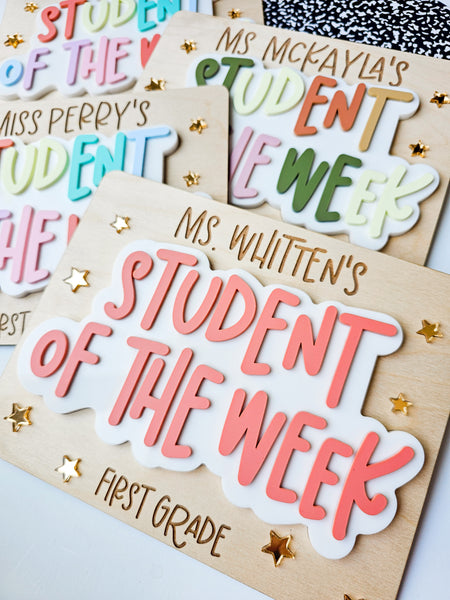 STUDENT
OF THE WE
MS MCKAYLA'S
STUDENT
HE WEEK
MISS PERRY'S
STUDENT
THE
FIRST
MS. WHITTEN'S
STUDENT
OF THE WEEK
FIRST GRADE